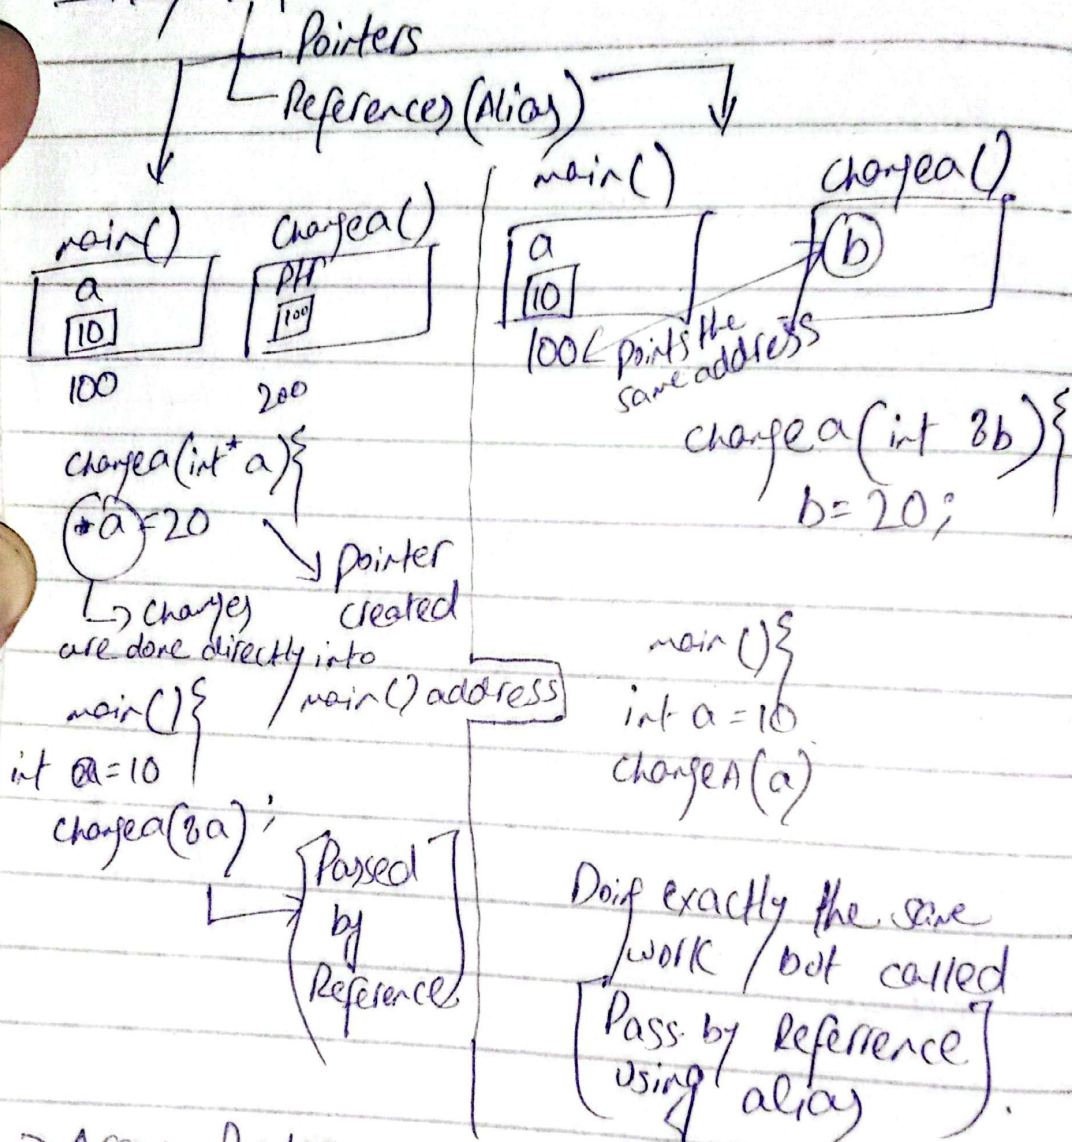 Pointers
References (Alias)
main()
changea()
a
ptr
10
100
100
200
changea(int* a){
*a=20
pointer
created
changes
are done directly into
main() address
main(){
int a=10
changea(&a);
Passed
by
Reference
main()
changea()
a
b
10
100
points the
same address
changea(int &b){
b=20;
main(){
int a=10
changeA(a)
Doing exactly the same
work, but called
Pass by Referrence
using alias.